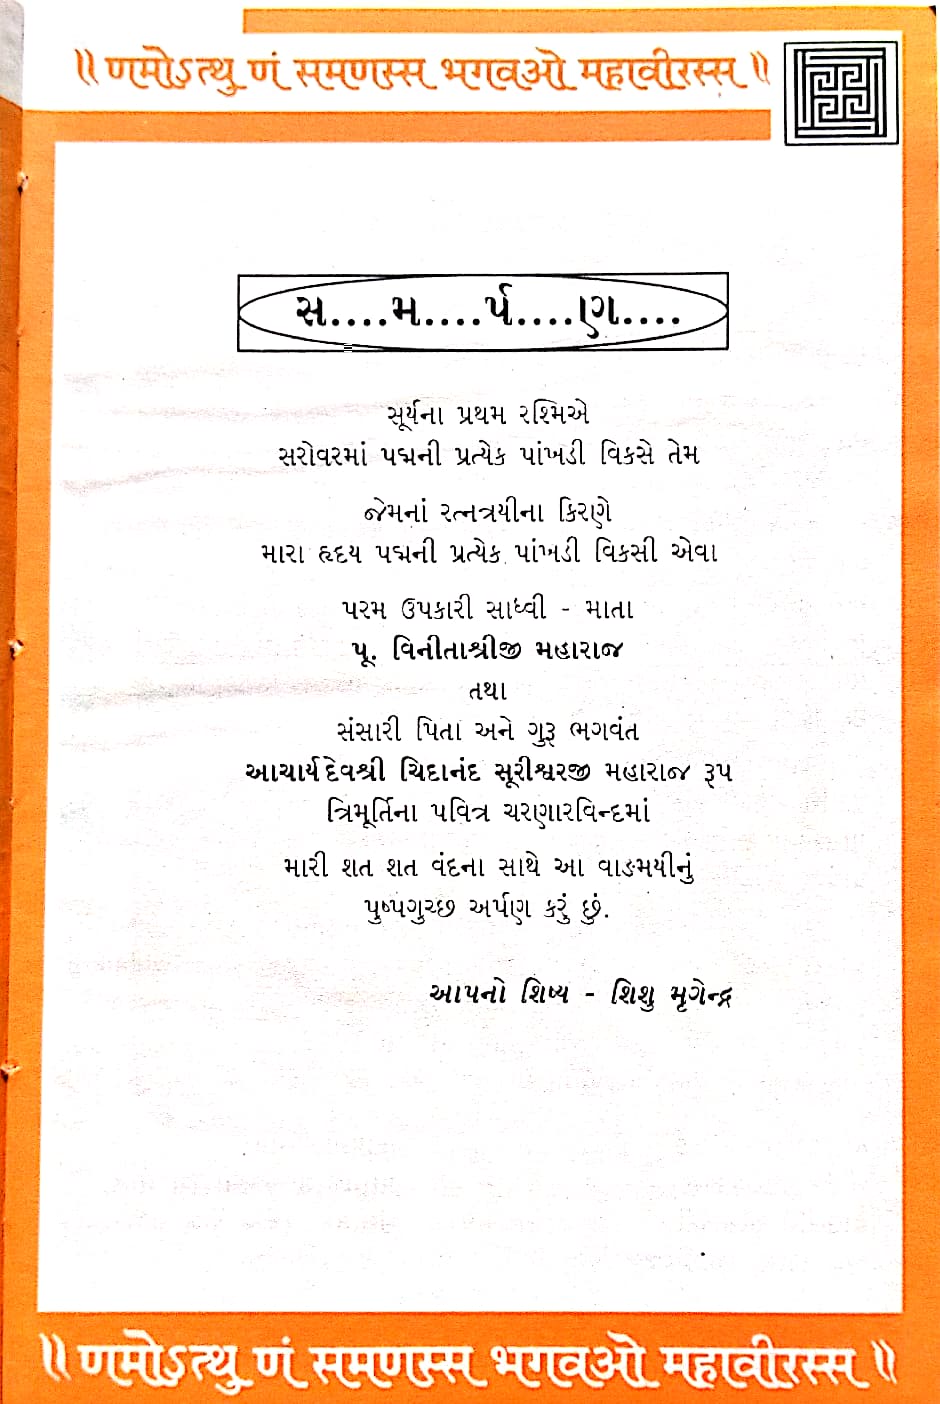 ॥ णमोऽत्थु णं समणस्स भगवओ महावीरस्स ॥
સ....મ....ર્પ....ણ....
સૂર્યના પ્રથમ રશ્મિએ
સરોવરમાં પદ્મની પ્રત્યેક પાંખડી વિકસે તેમ
જેમનાં રત્નત્રયીના કિરણે
મારા હૃદય પદ્મની પ્રત્યેક પાંખડી વિકસી એવા
પરમ ઉપકારી સાધ્વી - માતા
પૂ. વિનીતાશ્રીજી મહારાજ
તથા
સંસારી પિતા અને ગુરૂ ભગવંત
આચાર્યદેવશ્રી ચિદાનંદ સૂરીશ્વરજી મહારાજ રૂપ
ત્રિમૂર્તિના પવિત્ર ચરણારવિન્દમાં
મારી શત શત વંદના સાથે આ વાઙમયીનું
પુષ્પગુચ્છ અર્પણ કરું છું.
આપનો શિષ્ય - શિશુ મૃગેન્દ્ર
॥ णमोऽत्थु णं समणस्स भगवओ महावीरस्स ॥